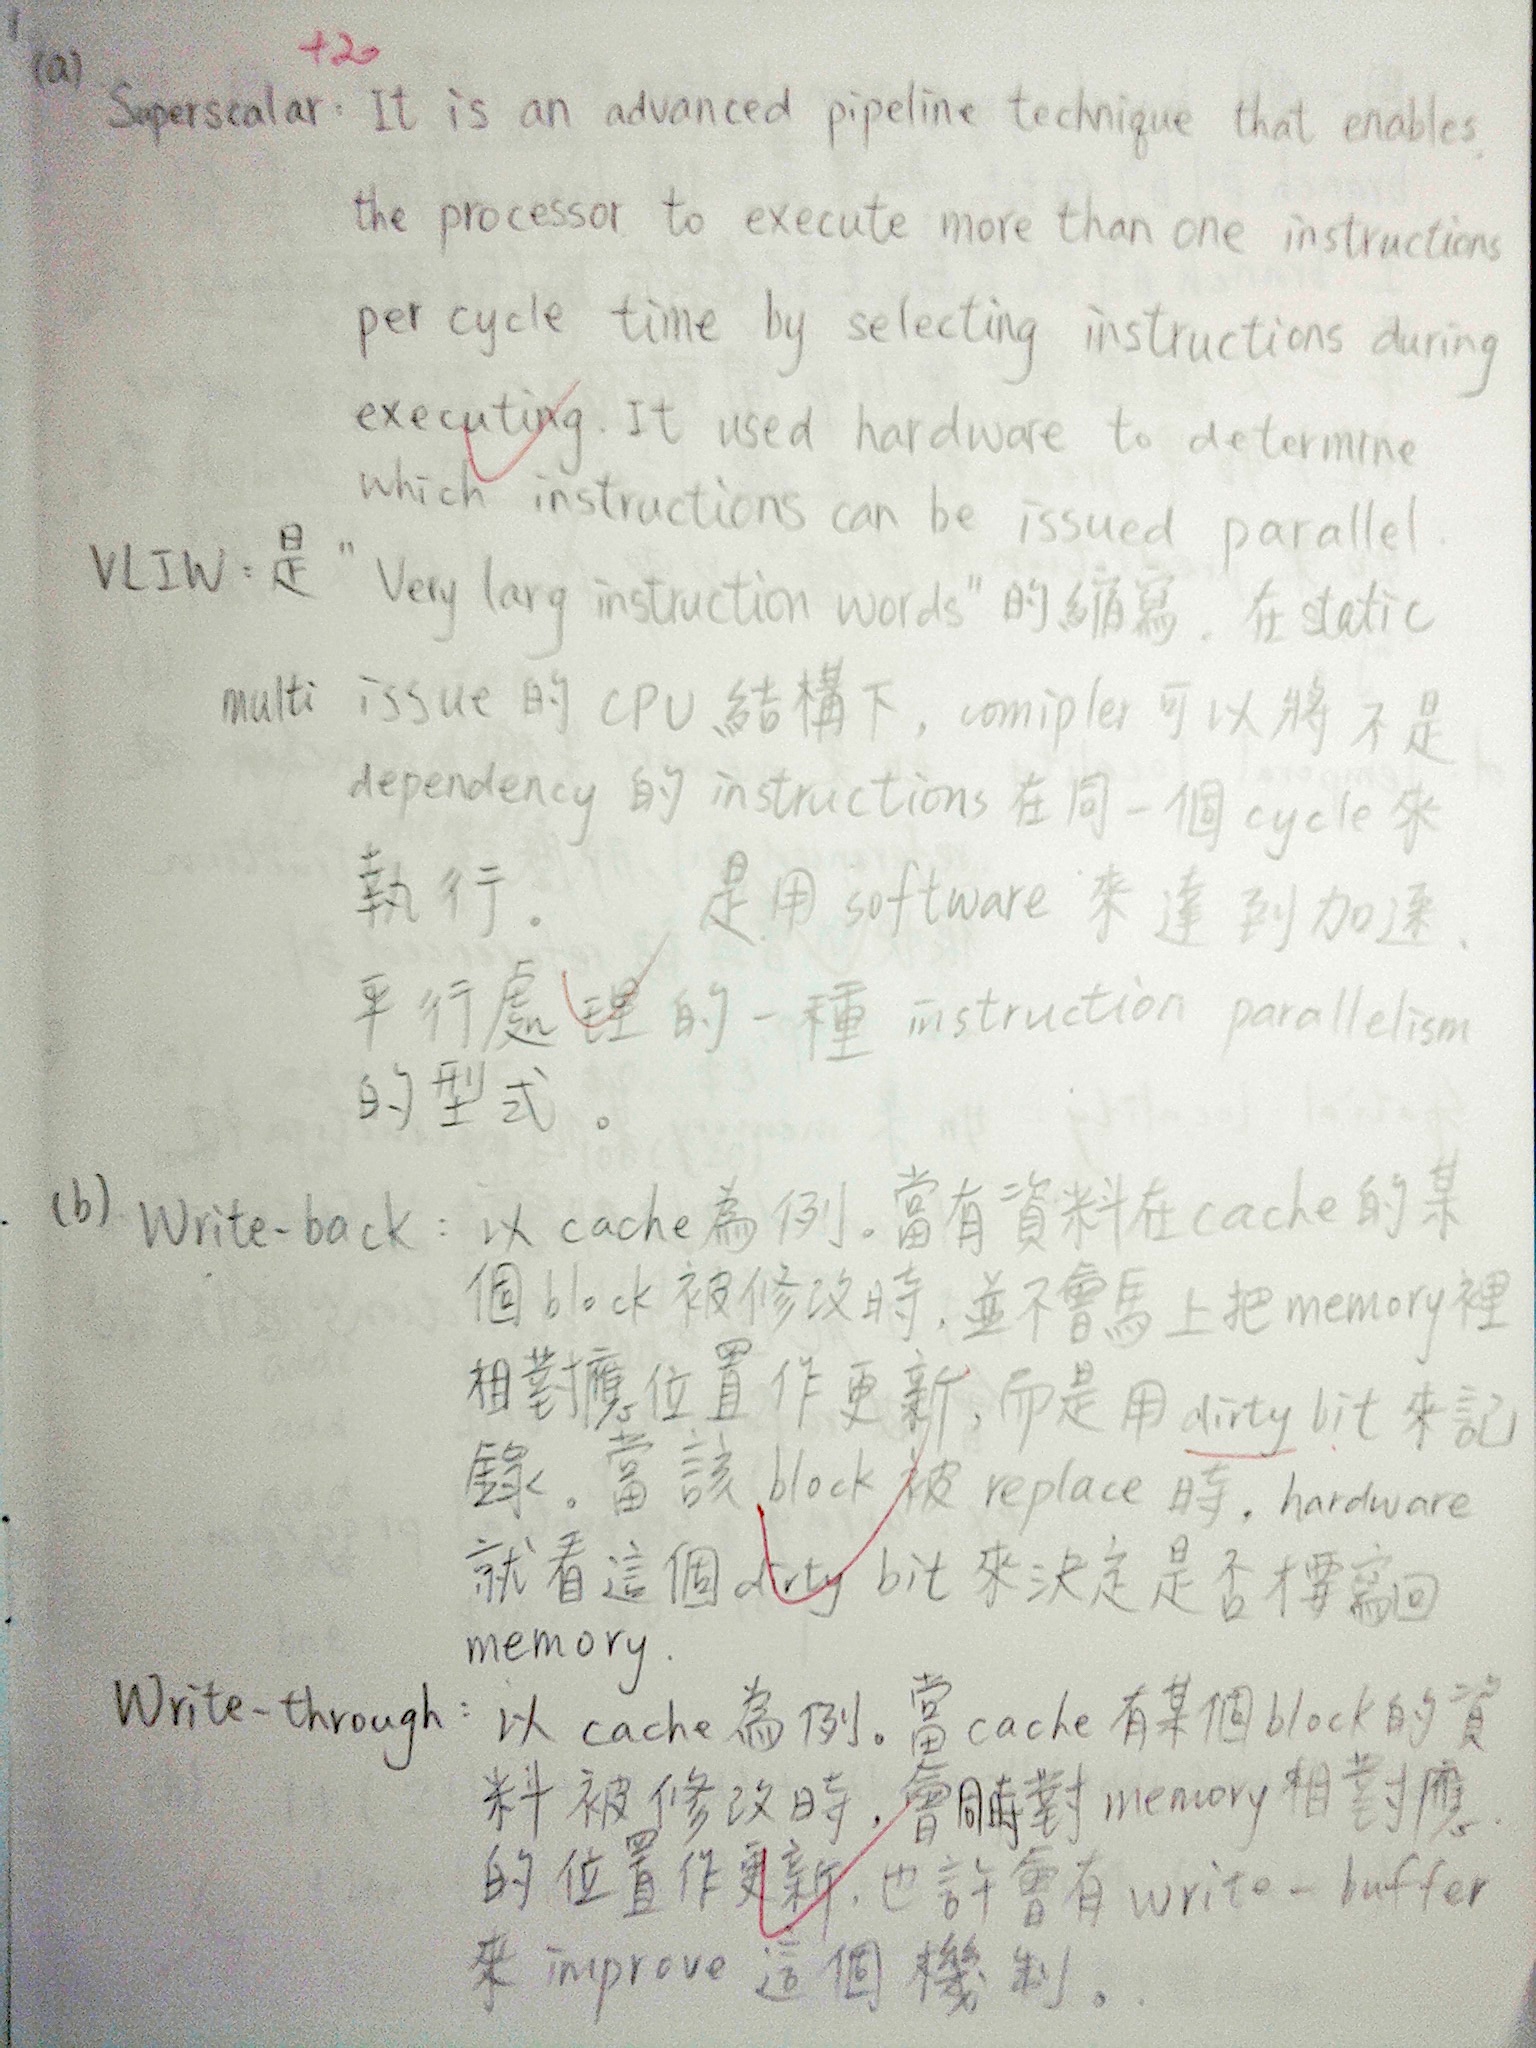 1
+20
(a)
Superscalar: It is an advanced pipeline technique that enables
the processor to execute more than one instructions
per cycle time by selecting instructions during
executing. It used hardware to determine
which instructions can be issued parallel.
VLIW:是"Very larg instruction words"的縮寫.在static
multi issue的CPU結構下,comipler可以將不是
dependency的instructions在同一個cycle來
執行。 是用software來達到加速、
平行處理的一種instruction parallelism
的型式。
(b) Write-back:以cache為例。當有資料在cache的某
個block被修改時,並不會馬上把memory裡
相對應位置作更新,而是用dirty bit來記
錄。當該block被replace時,hardware
就看這個dirty bit來決定是否要寫回
memory.
Write-through:以cache為例。當cache有某個block的資
料被修改時,會同時對memory相對應
的位置作更新,也許會有write-buffer
來improve這個機制。